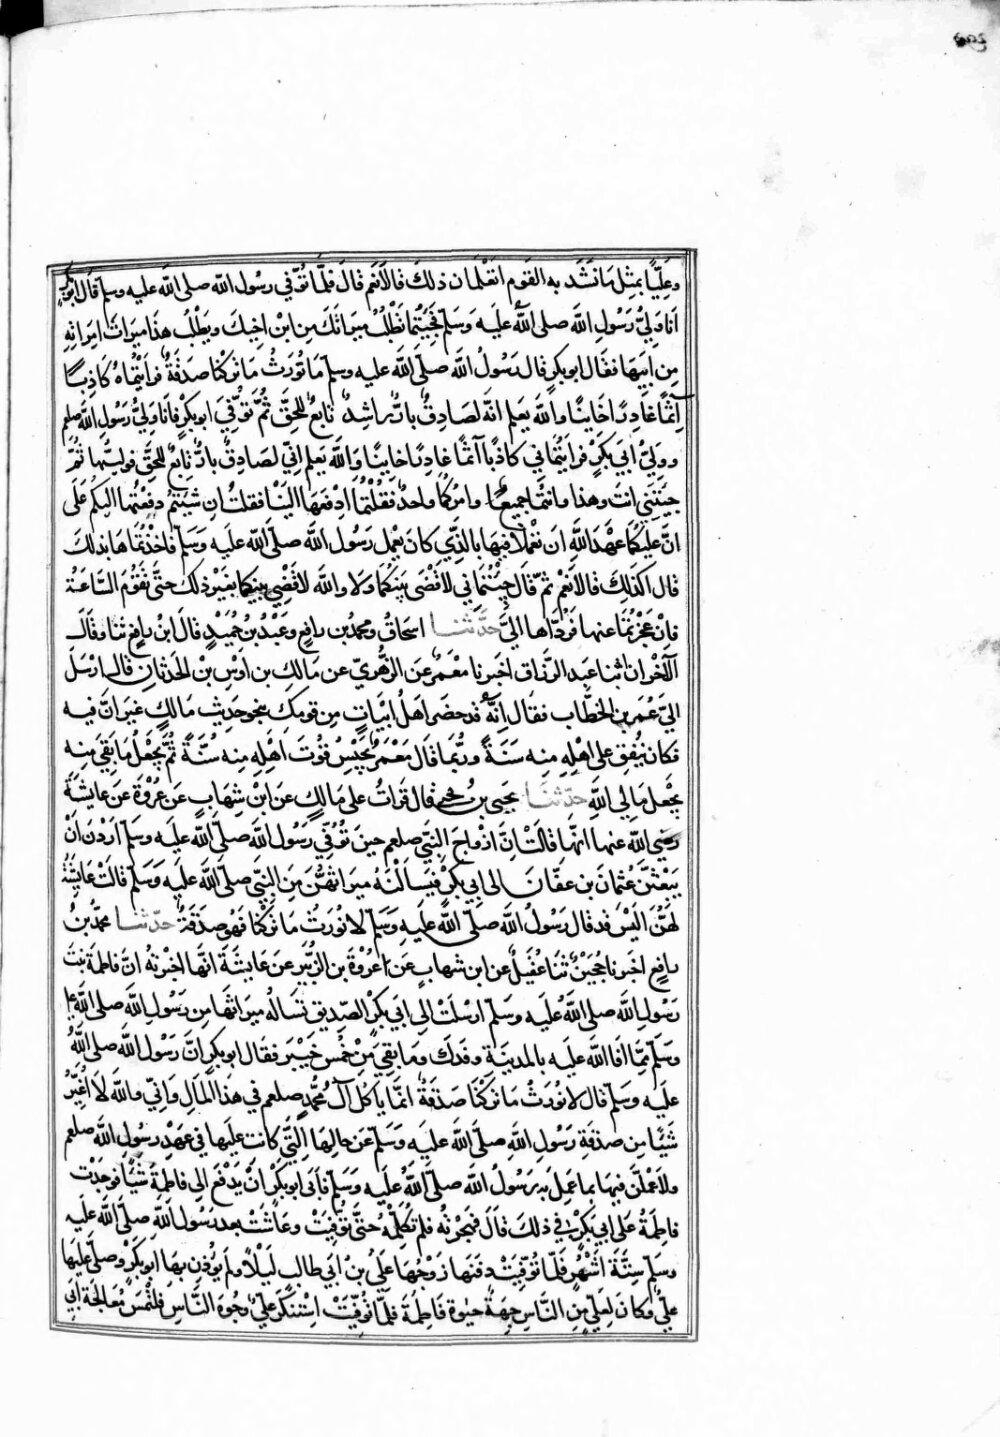 وعليا بمثل ما نشد به القوم اتعلمان ذلك قالا نعم قال فلما توفي رسول الله صلى الله عليه وسلم قال ابو بكر
انا ولي رسول الله صلى الله عليه وسلم فجئتما تطلب ميراثك من ابن اخيك ويطلب هذا ميراث امراته
من ابيها فقال ابو بكر قال رسول الله صلى الله عليه وسلم ما نورث ما تركنا صدقة فرايتماه كاذبا
آثما غادرا خاينا والله يعلم انه لصادق بار راشد تابع للحق ثم توفي ابو بكر فانا ولي رسول الله صلعم
وولي ابي بكر فرايتماني كاذبا آثما غادرا خاينا والله يعلم اني لصادق بار تابع للحق فوليتها ثم
جيتني انت وهذا وانتما جميعا وامركما واحد فقلتما ادفعها الينا فقلت ان شيتم دفعتها اليكم على
ان عليكما عهد الله ان تعملا فيها بالذي كان يعمل رسول الله صلى الله عليه وسلم فاخذتماها بذلك
قال اكذلك قالا نعم ثم قال جيتماني لاقضي بينكما ولا والله لا قضي بينكما بغير ذلك حتى تقوم الساعة
فان عجزتما عنها فرداها الي حدثنا اسحاق ومحمد بن رافع وعبد بن حميد قال ابن رافع ثنا وقال
الآخران انا عبد الرزاق اخبرنا معمر عن الزهري عن مالك بن اوس بن الحدثان قال ارسل
الي عمر بن الخطاب فقال انه قد حضر اهل ابيات من قومك بنحو حديث مالك غير ان فيه
فكان ينفق على اهله منه سنة وربما قال معمر يحبس قوت اهله منه سنة ثم يجعل ما بقي منه
مجعل مال الله حدثنا يحيى بن يحيى قال قرات على مالك عن ابن شهاب عن عروة عن عايشة
رضي الله عنها انها قالت ان ازواج النبي صلعم حين توفي رسول الله صلى الله عليه وسلم اردن ان
يبعثن عثمان بن عفان الى ابي بكر فيسالنه ميراثهن من النبي صلى الله عليه وسلم قالت عايشة
لهن اليس قد قال رسول الله صلى الله عليه وسلم لا نورث ما تركنا فهو صدقة حدثنا محمد بن
رافع اخبرنا حجين ثنا عقيل عن ابن شهاب عن عروة بن الزبير عن عايشة انها اخبرته ان فاطمة بنت
رسول الله صلى الله عليه وسلم ارسلت الى ابي بكر الصديق تساله ميراثها من رسول الله صلى الله عليه
وسلم مما افا الله عليه بالمدينة وفدك وما بقي من خمس خيبر فقال ابو بكر ان رسول الله صلى الله
عليه وسلم قال لا نورث ما تركنا صدقة انما ياكل آل محمد صلعم في هذا المال واني والله لا اغير
شيئا من صدقة رسول الله صلى الله عليه وسلم عن حالها التي كانت عليها في عهد رسول الله صلعم
ولاعملن فيها بما عمل به رسول الله صلى الله عليه وسلم فابى ابو بكر ان يدفع الى فاطمة شيئا فوجدت
فاطمة على ابي بكر في ذلك قال فهجرته فلم تكلمه حتى توفيت وعاشت بعد رسول الله صلى الله عليه
وسلم ستة اشهر فلما توفيت دفنها زوجها علي بن ابي طالب ليلا ولم يوذن بها ابو بكر وصلى عليها
علي وكان لعلي من الناس جهة حيوة فاطمة فلما توفيت استنكر علي وجوه الناس فلتمس معالجة ابي